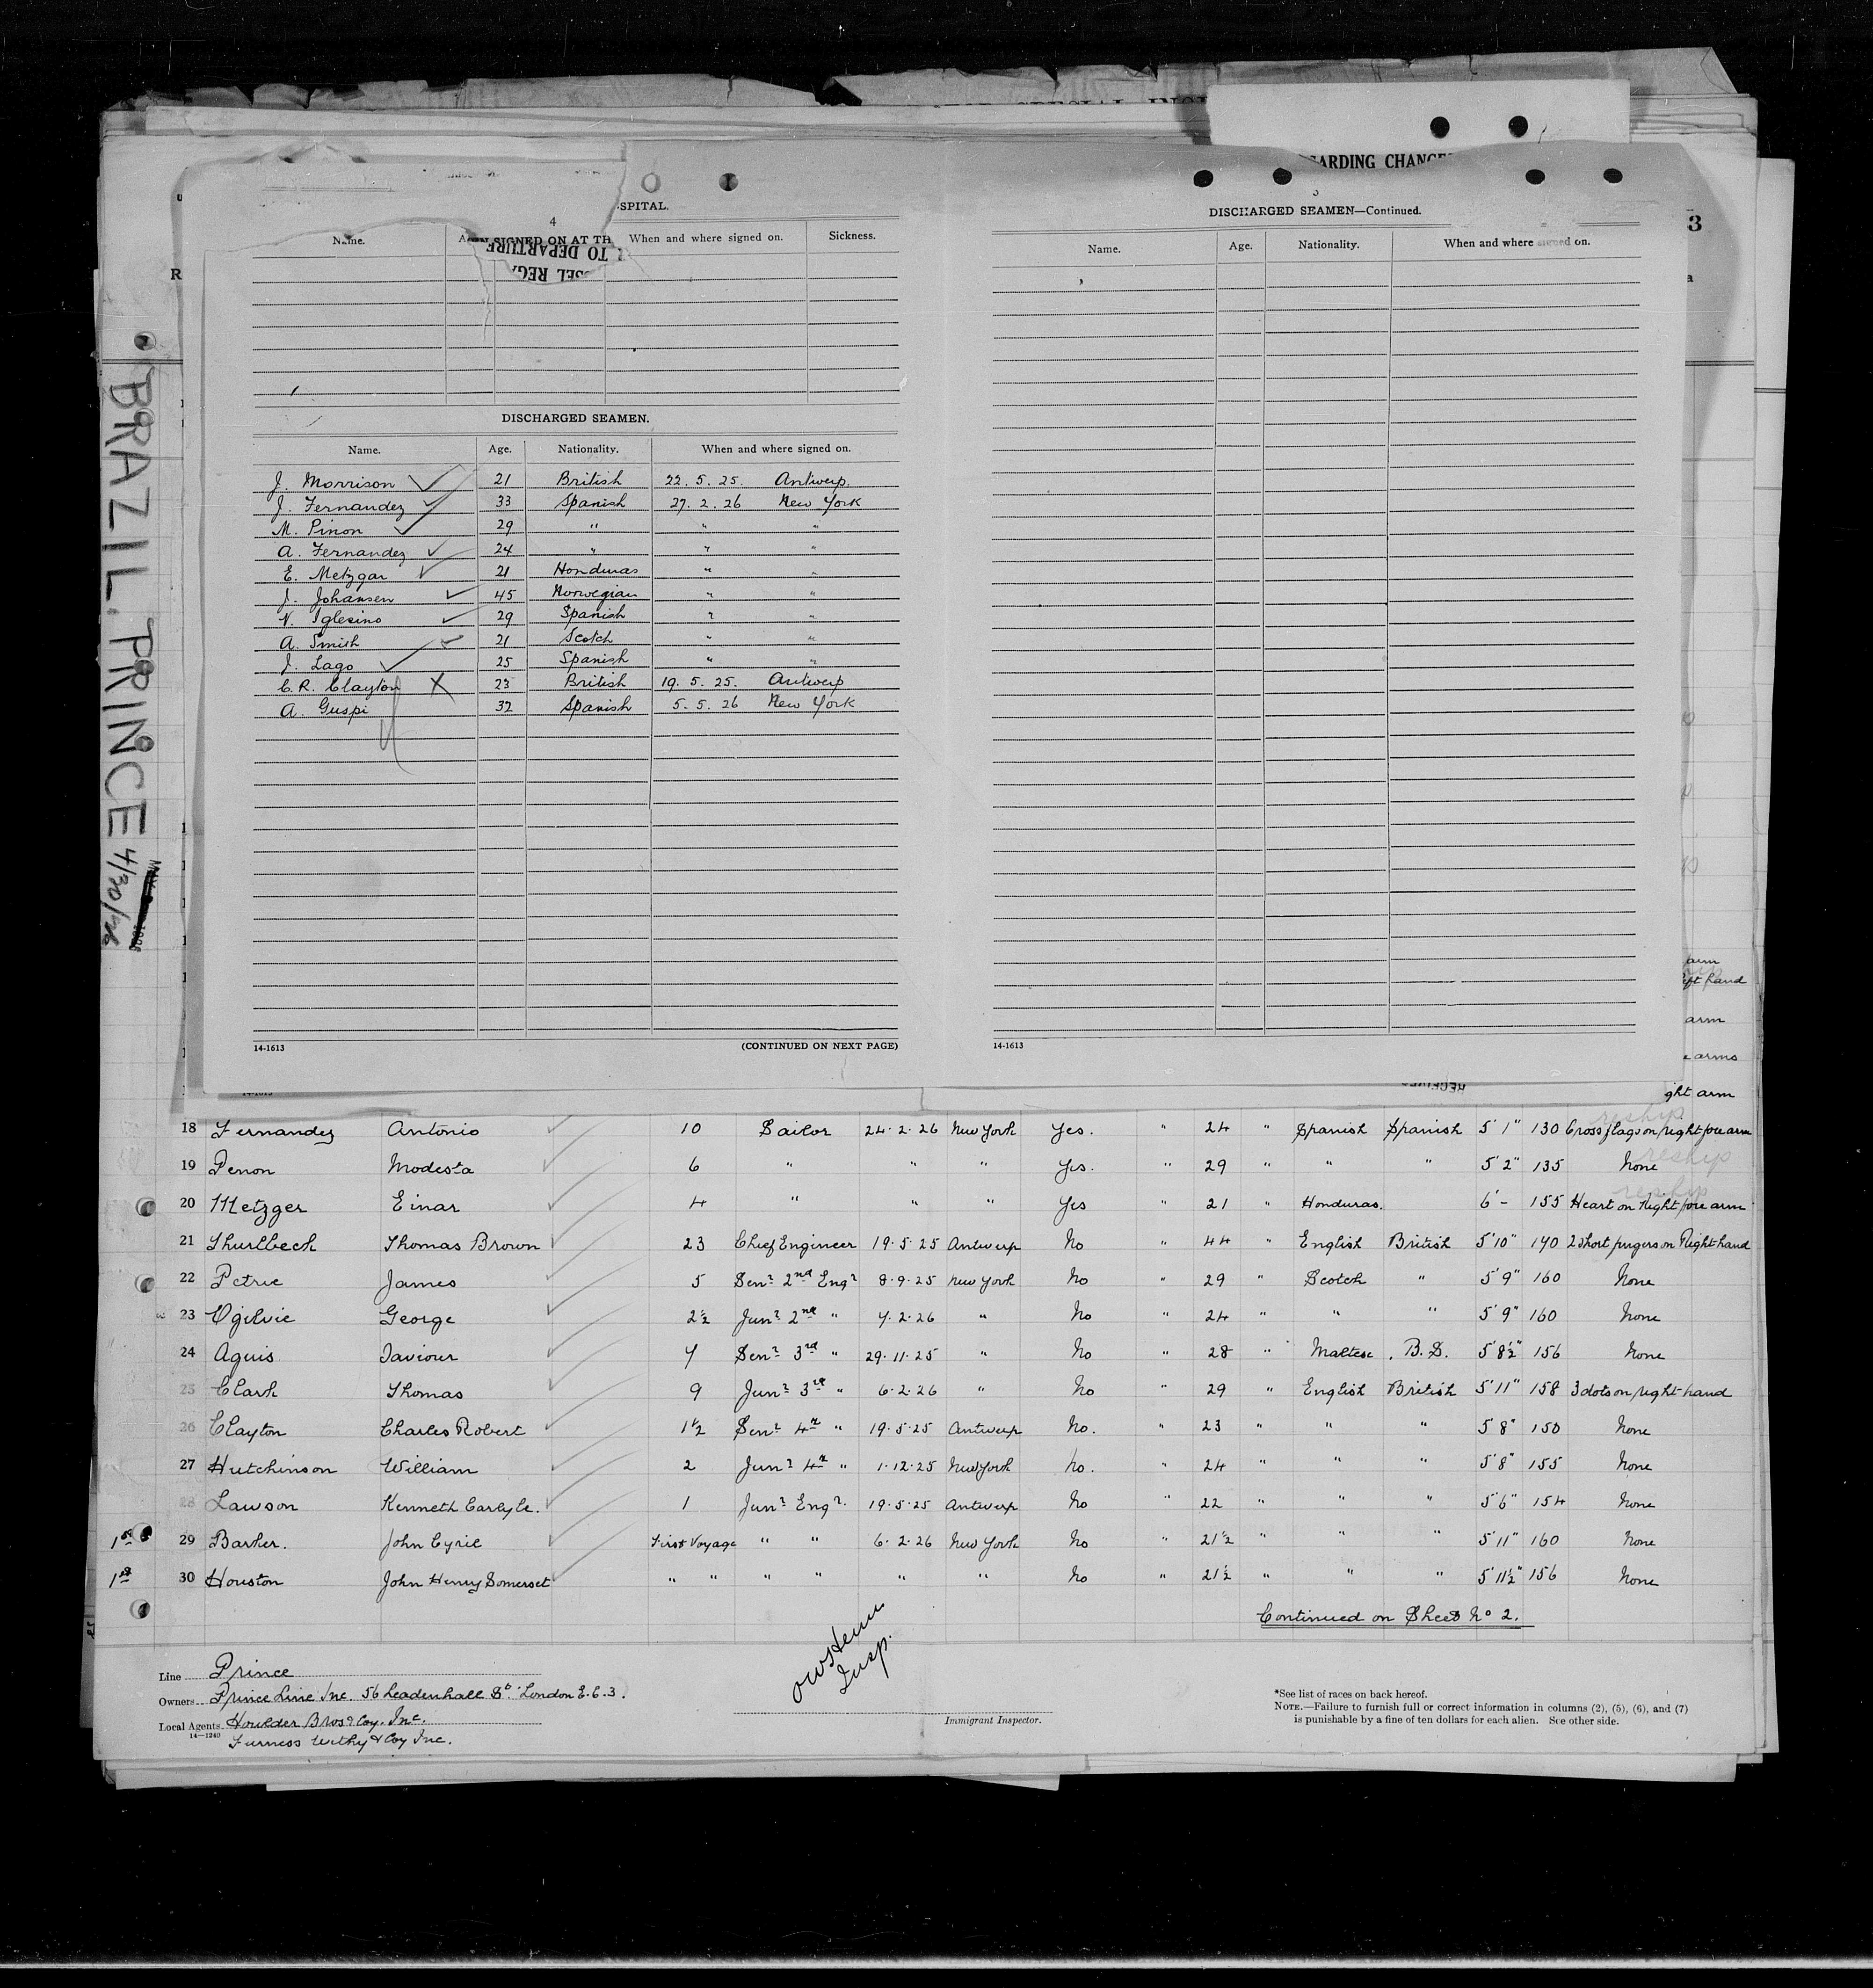 GARDING CHANGE
SPITAL.
4
N SIGNED ON AT TH
TO DEPARTURE
SEL REGA
Name.
When and where signed on.
Sickness.
DISCHARGED SEAMEN.
Name. Age. Nationality. When and where signed on.
J. Morrison 21 British 22. 5. 25. Antwerp
J. Fernandez 33 Spanish 27. 2. 26 New York
M. Pinon 29 " " "
A. Fernandez 24 " " "
E. Metzgar 21 Honduras " "
J. Johansen 45 Norwegian " "
V. Iglesino 29 Spanish " "
A. Smith 21 Scotch " "
J. Lago 25 Spanish " "
C. R. Clayton X 23 British 19. 5. 25. Antwerp
A. Guspi 32 Spanish 5. 5. 26 New York
14-1613
(CONTINUED ON NEXT PAGE)
3
DISCHARGED SEAMEN—Continued.
Name. Age. Nationality. When and where signed on.
14-1613
3
R
a
BRAZIL. PRINCE 4/30/26
arm
eft hand
arm
e arms
ght arm
14-1613
RECEIVED
reship
18 Fernandez Antonio 10 Sailor 24.2.26 New York Yes. " 24 " Spanish Spanish 5'1" 130 Cross flags on right fore arm
reship
19 Penon Modesta 6 " " " Yes. " 29 " " " 5'2" 135 None
reship
20 Metzger Einar 4 " " " Yes " 21 " Honduras. 6'- 155 Heart on Right fore arm
21 Thurlbeck Thomas Brown 23 Chief Engineer 19.5.25 Antwerp No " 44 " English British 5'10" 190 2 short fingers on Right hand
22 Petrie James 5 Senr 2nd Engr 8.9.25 New York No " 29 " Scotch " 5'9" 160 None
23 Ogilvie George 2½ Junr 2nd " 4.2.26 " No " 24 " " " 5'9" 160 None
24 Aguis Saviour 7 Senr 3rd " 29.11.25 " No " 28 " Maltese . B.S. 5'8½" 156 None
25 Clark Thomas 9 Junr 3rd " 6.2.26 " No " 29 " English British 5'11" 158 3 dots on right hand
26 Clayton Charles Robert 1½ Senr 4th " 19.5.25 Antwerp No. " 23 " " " 5'8" 150 None
27 Hutchinson William 2 Junr 4th " 1.12.25 New York No. " 24 " " " 5'8" 155 None
28 Lawson Kenneth Carlyle. 1 Junr Engr. 19.5.25 Antwerp No " 22 " " " 5'6" 154 None
1st 29 Barker. John Cyril First Voyage " " 6.2.26 New York No " 21½ " " " 5'11" 160 None
1st 30 Houston John Henry Somerset " " " " " " No " 21½ " " " 5'11½" 156 None
Continued on Sheet No 2.
Line Prince
Owners Prince Line Inc. 56 Leadenhall St. London E.C.3.
Local Agents Houlder Bros & Coy. Inc.
14—1240
Furness Withy & Coy Inc.
Insp.
Immigrant Inspector.
*See list of races on back hereof.
NOTE.—Failure to furnish full or correct information in columns (2), (5), (6), and (7)
is punishable by a fine of ten dollars for each alien. See other side.